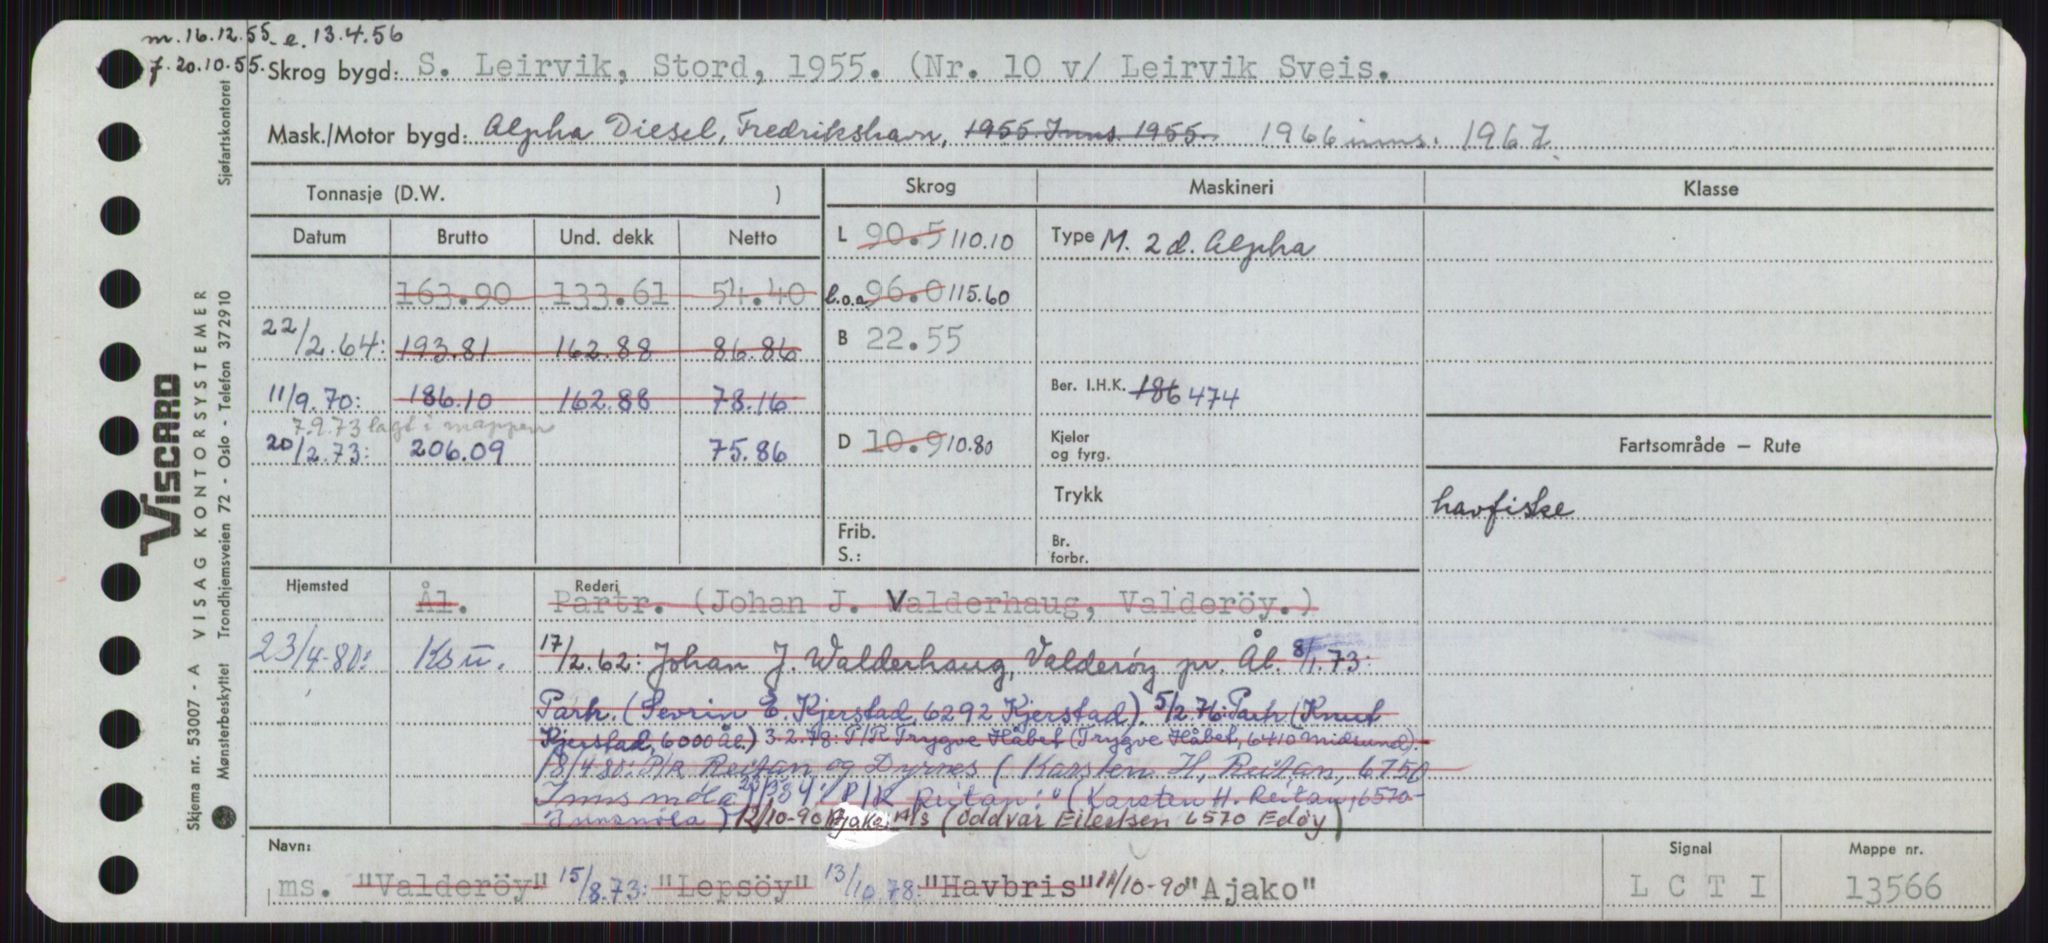 m. 16.12.55 - e. 13.4.56
f. 20.10.55.
Skrog bygd: S. Leirvik, Stord, 1955. (Nr. 10 v/ Leirvik Sveis.
Mask./Motor bygd: Alpha Diesel, Fredrikshavn, 1955 Inns. 1955. 1966 inns. 1967.
Tonnasje (D.W. )
Skrog
Maskineri
Klasse
Datum Brutto Und. dekk Netto
L 90.5 110.10
Type M. 2 d. Alpha
163.90 133.61 54.40
l.o.a. 96.0 115.60
22/2.64: 193.81 162.88 86.86
B 22.55
11/9.70: 186.10 162.88 78.16
Ber. I.H.K. 186 474
7.9.73 lagt i mappen
20/2.73: 206.09 75.86
D 10.9 10.80
Kjeler og fyrg.
Fartsområde — Rute
Trykk
havfiske
Frib.
S.:
Br. forbr.
Hjemsted
Ål.
Rederi
Partr. (Johan J. Valderhaug, Valderöy.)
23/4-80: Ksu.
17/2.62: Johan J. Walderhaug, Valderøy pr. Ål. 8/1.73:
Partr. (Sevrin E. Kjerstad, 6292 Kjerstad). 5/2.76: Partr (Knut
Kjerstad, 6000 Ål.) 3.2.78: P/R Trygve Håbet (Trygve Håbet, 6410 Midsund).
18/4 80: P/R Reitan og Dyrnes (Karsten H. Reitan, 6750
Innsmola 84: P/R Reitan: " (Karsten H. Reitan, 6570-
Innsmøla) 12/10-90 Ajako A/S (Oddvar Eilertsen 6570 Edøy)
Navn:
ms. "Valderöy" 15/8.73: "Lepsöy" 13/10.78: "Havbris" 12/10-90 "Ajako"
Signal
L C T I
Mappe nr.
13566
VISCARD
Skjema nr. 53007 - A VISAG KONTORSYSTEMER
Mønsterbeskyttet Trondhjemsveien 72 - Oslo - Telefon 372910
Sjøfartskontoret